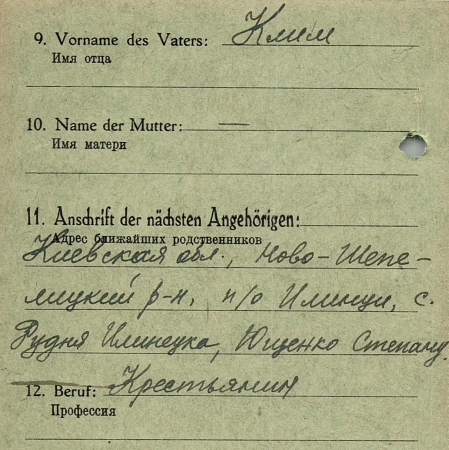 9. Vorname des Vaters: Клим
Имя отца
10. Name der Mutter: —
Имя матери
11. Anschrift der nächsten Angehörigen:
Адрес ближайших родственников
Киевская обл., Ново-Шепе-
лицкий р-н, п/о Илинци, с.
Рудня Илинецка, Ющенко Степану.
12. Beruf: Крестьянин
Профессия